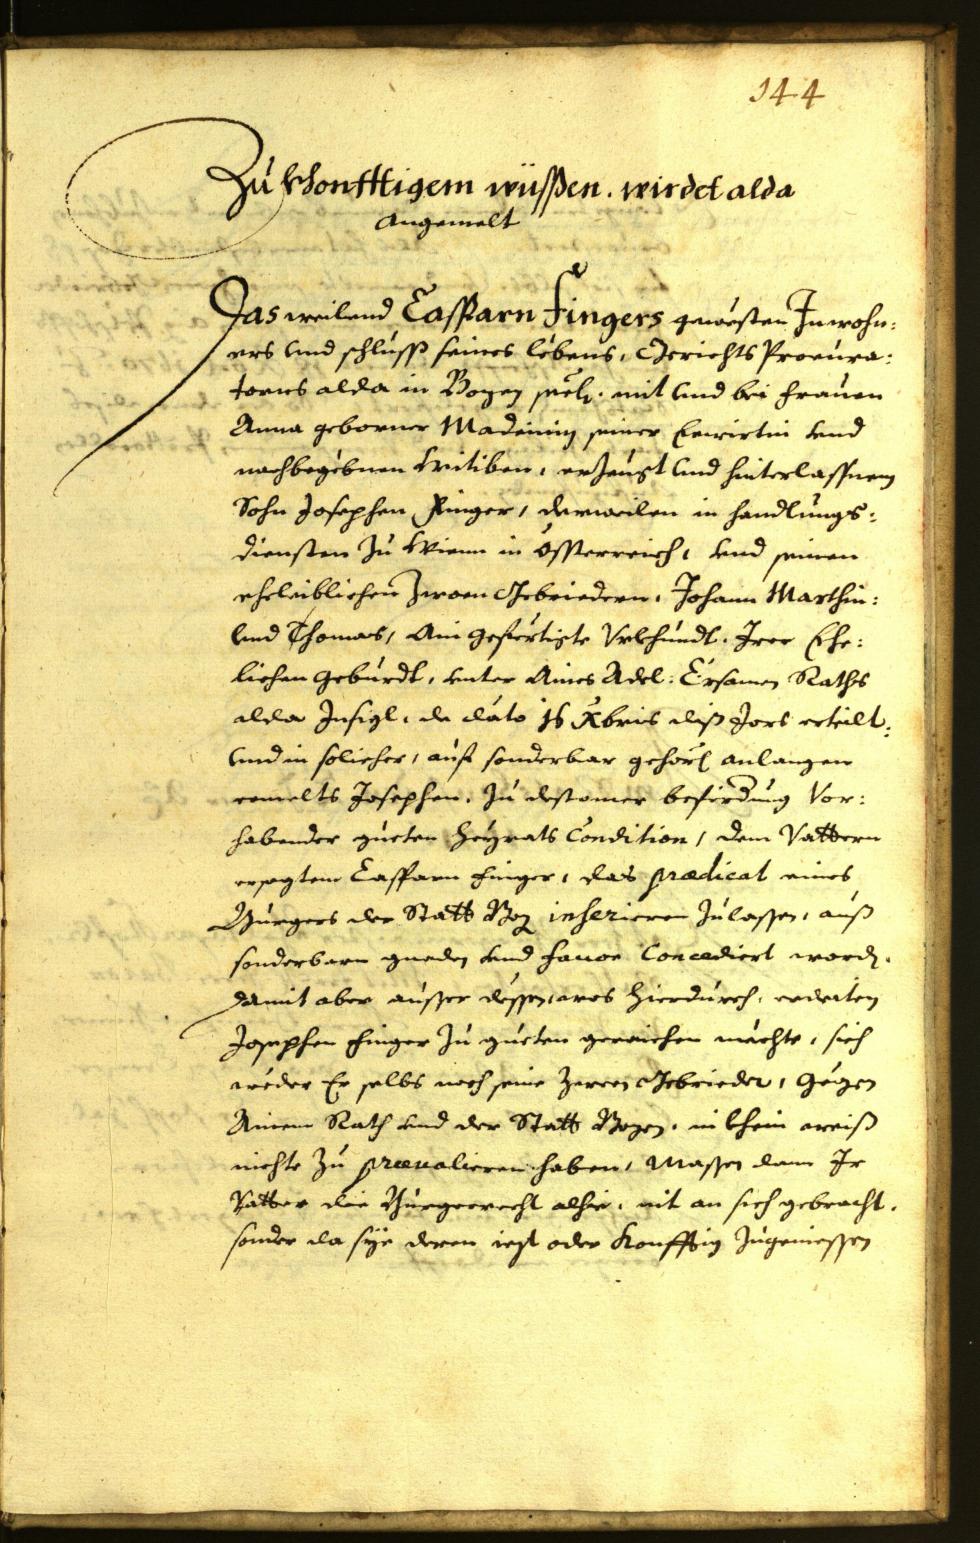 144
Zu khonfftigem wüssen. wirdet alda
Angemelt
Das weilend Casparn Fingers gewesten Inwohn:
ers und schluss seines lebens, Gerichts Procura:
torns alda in Bozen seel. mit und bei Frauen
Anna geborner Madeinin seiner Eewirtin und
nachbegebnen Wittiben, erzeugt und hinterlassnem
Sohn Josephen Finger, derweilen in handlungs:
diensten zu Wienn in Össterreich, und seinen
eheleiblichen zwaen Gebriedern, Johann Marthin:
und Thomas, Ain gefertigte Urkhundt. Irer Ehe:
lichen geburdt, unter Aines Adel: Ersamen Raths
alda Insigl, de dato 16 Xbris diss Jars erteilt,
und in solicher, auf sonderbar gehors anlangen
ermelts Josephen, zu destomer befirdung Vor:
habender gueten Heyrats Condition, dem Vattern
ersagtem Casparn Finger, das prædicat eines
Burgers der Statt Boz inserieren zulassen, auß
sonderbarn gnaden und favor Concediert word.
Damit aber ausser dessen, wes hierdurch, erdeiten
Josephen Finger zu gueten gereichen mechte, sich
weder Er selbs noch seine zween Gebrieder, gegen
Ainem Rath und der Statt Bozen, in khein weiß
nichts zu prævalieren haben, Massen dann Ir
Vatter die Burgerrecht alhie, nit an sich gebracht,
sonder da sye deren iezt oder Konfftig zugeniessen